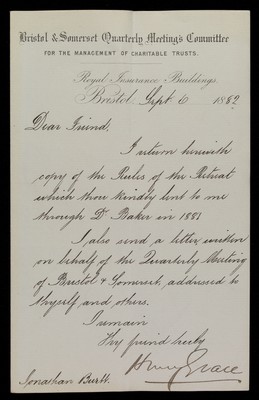 Bristol & Somerset Quarterly Meeting's Committee
FOR THE MANAGEMENT OF CHARITABLE TRUSTS.
Royal Insurance Buildings,
Bristol, Sept 6 1882
Dear Friend,
I return herewith
copy of the Rules of the Retreat
which thou kindly lent to me
through Dr Baker in 1881
I also send a letter written
on behalf of the Quarterly Meeting
of Bristol & Somerset, addressed to
thyself and others.
I remain
Thy friend truly
Henry Grace
Jonathan Burtt.